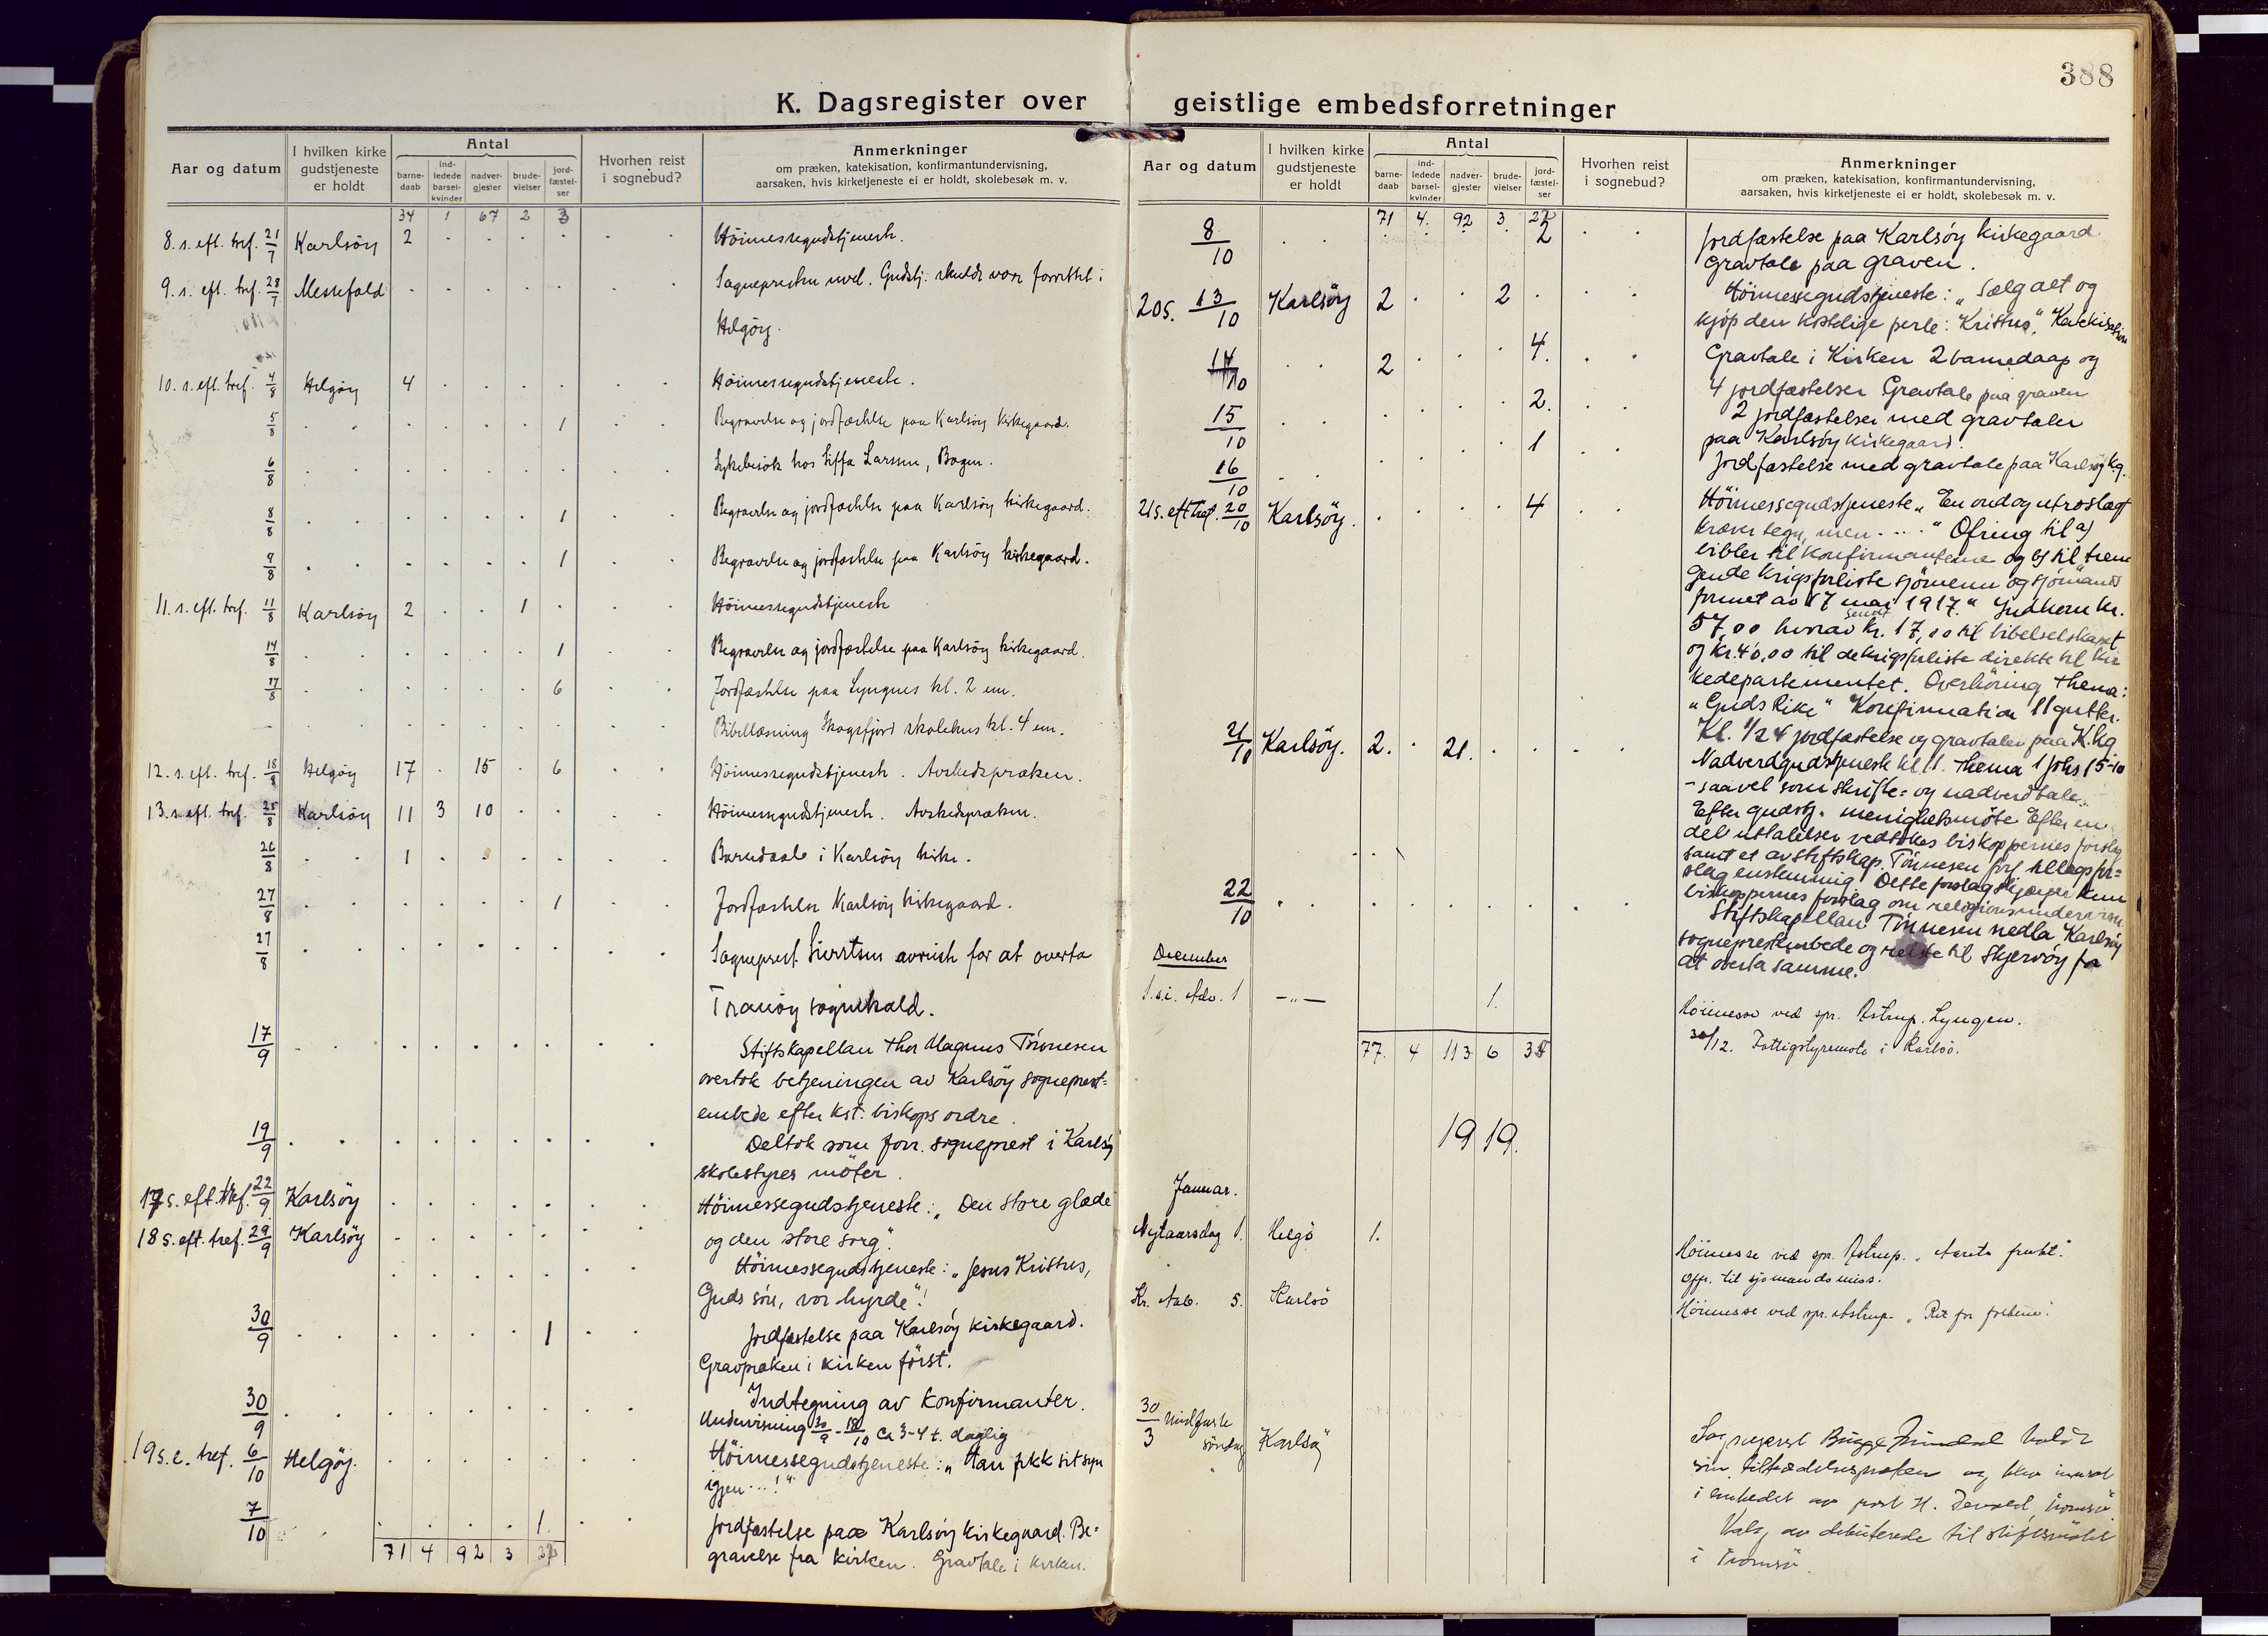 388
K. Dagsregister over geistlige embedsforretninger
Aar og datum
I hvilken kirke gudstjeneste er holdt
Antal
barne-daab
ind-ledede barsel-kvinder
nadver-gjester
brude-vielser
jord-fæstel-ser
Hvorhen reist i sognebud?
Anmerkninger
om præken, katekisation, konfirmantundervisning,
aarsaken, hvis kirketjeneste ei er holdt, skolebesøk m. v.
34 1 67 2 3
8. s. eft. tref. 21/7 Karlsöy 2 Höimessegudstjeneste.
9. s. eft. tref. 28/7 Messefald Sognepresten uvel. Gudstj. skulde vær forrettet i
Helgöy.
10. s. eft. tref. 4/8 Helgöy 4 Höimessegudstjeneste.
5/8 1 Begravelse og jordfæstelse paa Karlsöy kirkegaard.
6/8 Sykebesök hos Siffa Larsen, Bogen.
8/8 1 Begravelse og jordfæstelse paa Karlsöy kirkegaard.
9/8 1 Begravelse og jordfæstelse paa Karlsöy kirkegaard.
11. s. eft. tref. 11/8 Karlsöy 2 1 Höimessegudstjeneste
14/8 1 Begravelse og jordfæstelse paa Karlsöy kirkegaard.
17/8 6 Jordfæstelse paa Lyngnes kl. 2 em.
— Bibellæsning Skogsfjord skolehus kl. 4 em.
12. s. eft. tref. 18/8 Helgöy 17 15 6 Höimessegudstjeneste. Avskedspræken.
13. s. eft. tref. 25/8 Karlsöy 11 3 10 Höimessegudstjeneste. Avskedspræken.
26/8 1 Barnedaab i Karlsöy kirke.
27/8 1 Jordfæstelse Karlsöy kirkegaard.
27/8 Sogneprest Sivertsen avreiste for at overta
Tranöy sognekald.
17/9 Stiftskapellan Thor Magnus Tönnesen
overtok betjeningen av Karlsöy sogneprest=
embede efter kst. biskops ordre.
19/9 Deltok som forr. sogneprest i Karlsöy
skolestyres möter.
17 s. eft. tref. 22/9 Karlsöy Höimessegudstjeneste: „Den store glæde
og den store sorg".
18 s. eft. tref. 29/9 Karlsöy Höimessegudstjeneste: „Jesus Kristus,
Guds sön, vor hyrde"!
30/9 1 Jordfæstelse paa Karlsöy kirkegaard.
Gravpræken i kirken först.
30/9 Indtegning av konfirmanter.
Undervisning 30/9 - 18/10 ca 3-4 t. daglig
19 s. e. tref. 6/10 Helgöy. Höimessegudstjeneste: „Han fikk sit syn
igjen...!"
7/10 1. Jordfæstelse paa Karlsöy kirkegaard. Be=
gravelse fra kirken. Gravtale i kirken.
71 4 92 3
Aar og datum
I hvilken kirke gudstjeneste er holdt
Antal
barne-daab
ind-ledede barsel-kvinder
nadver-gjester
brude-vielser
jord-fæstel-ser
Hvorhen reist i sognebud?
Anmerkninger
om præken, katekisation, konfirmantundervisning,
aarsaken, hvis kirketjeneste ei er holdt, skolebesøk m. v.
71 4. 92 3.
8/10 2 Jordfæstelse paa Karlsöy kirkegaard
Gravtale paa graven.
20 s. 13/10 Karlsöy 2 2 Höimessegudstjeneste: „Sælg alt og
kjöp den kostelige perle: Kristus". Katekisation
14/10 2 4. Gravtale i Kirken 2 barnedaap og
4 jordfæstelser Gravtale paa graven
15/10 2. 2 jordfæstelser med gravtaler
paa Karlsöy kirkegaard.
16/10 1 Jordfæstelse med gravtale paa Karlsöy kg.
21 s. eft tref. 20/10 Karlsöy. 4 Höimessegudstjeneste „En ond og utro slegt
kræver tegn, men...." Ofring til a)
bibler til konfirmanterne og b) til træn
gende krigsforliste sjömenn og sjömands
formet av 17 mai 1917." Indkom kr.
57,00 hvorav sendt kr. 17,00 til bibelselskapet
og kr. 40,00 til de krigsforliste direkte til kir
kedepartementet. Overhöring thema:
„Guds Rike" Konfirmation 11 gutter.
Kl. 1/2 4 jordfæstelse og gravtaler paa K. kg
21/10 Karlsöy. 2. 21. Nadverdgudstjeneste kl. 11. Thema 1 Johs 15-10
- saavel som skrifte= og nadverdtale.
Efter gudstj. menighetsmöte Efter en
del uttalelser vedtokes biskoppernes forslag
samt et av stiftskap. Tönnesen forf tillægsfor=
slag enstemmig Dette forslag skjærper kun
biskoppernes forslag om religionsundervisn
22/10 Stiftskapellan Tönnesen nedla Karlsöy
sogneprestembede og reiste til Skjervöy for
at overta samme.
December
1. s. i. Adv. 1 —„— 1. Höimesse ved spr. Astrup. Lyngen.
30/12. Fattigstyremöte i Karlsö.
77. 4 113 6
1919.
Januar.
Nytaarsdag 1. Helgö 1. Höimesse ved spr. Astrup. „Aarets frukt."
Offr. til sjömandsmiss.
Kr. Aab. 5. Karlsö Höimesse ved spr. Astrup. „
30/3 midfaste söndag Karlsöy Sogneprest Bugge holdt
sin tiltrædelsespræken og blev innsat
i embedet av prost H. Devold, Tromsö.
Valg av deputerede til stiftsmötet
i Tromsö.